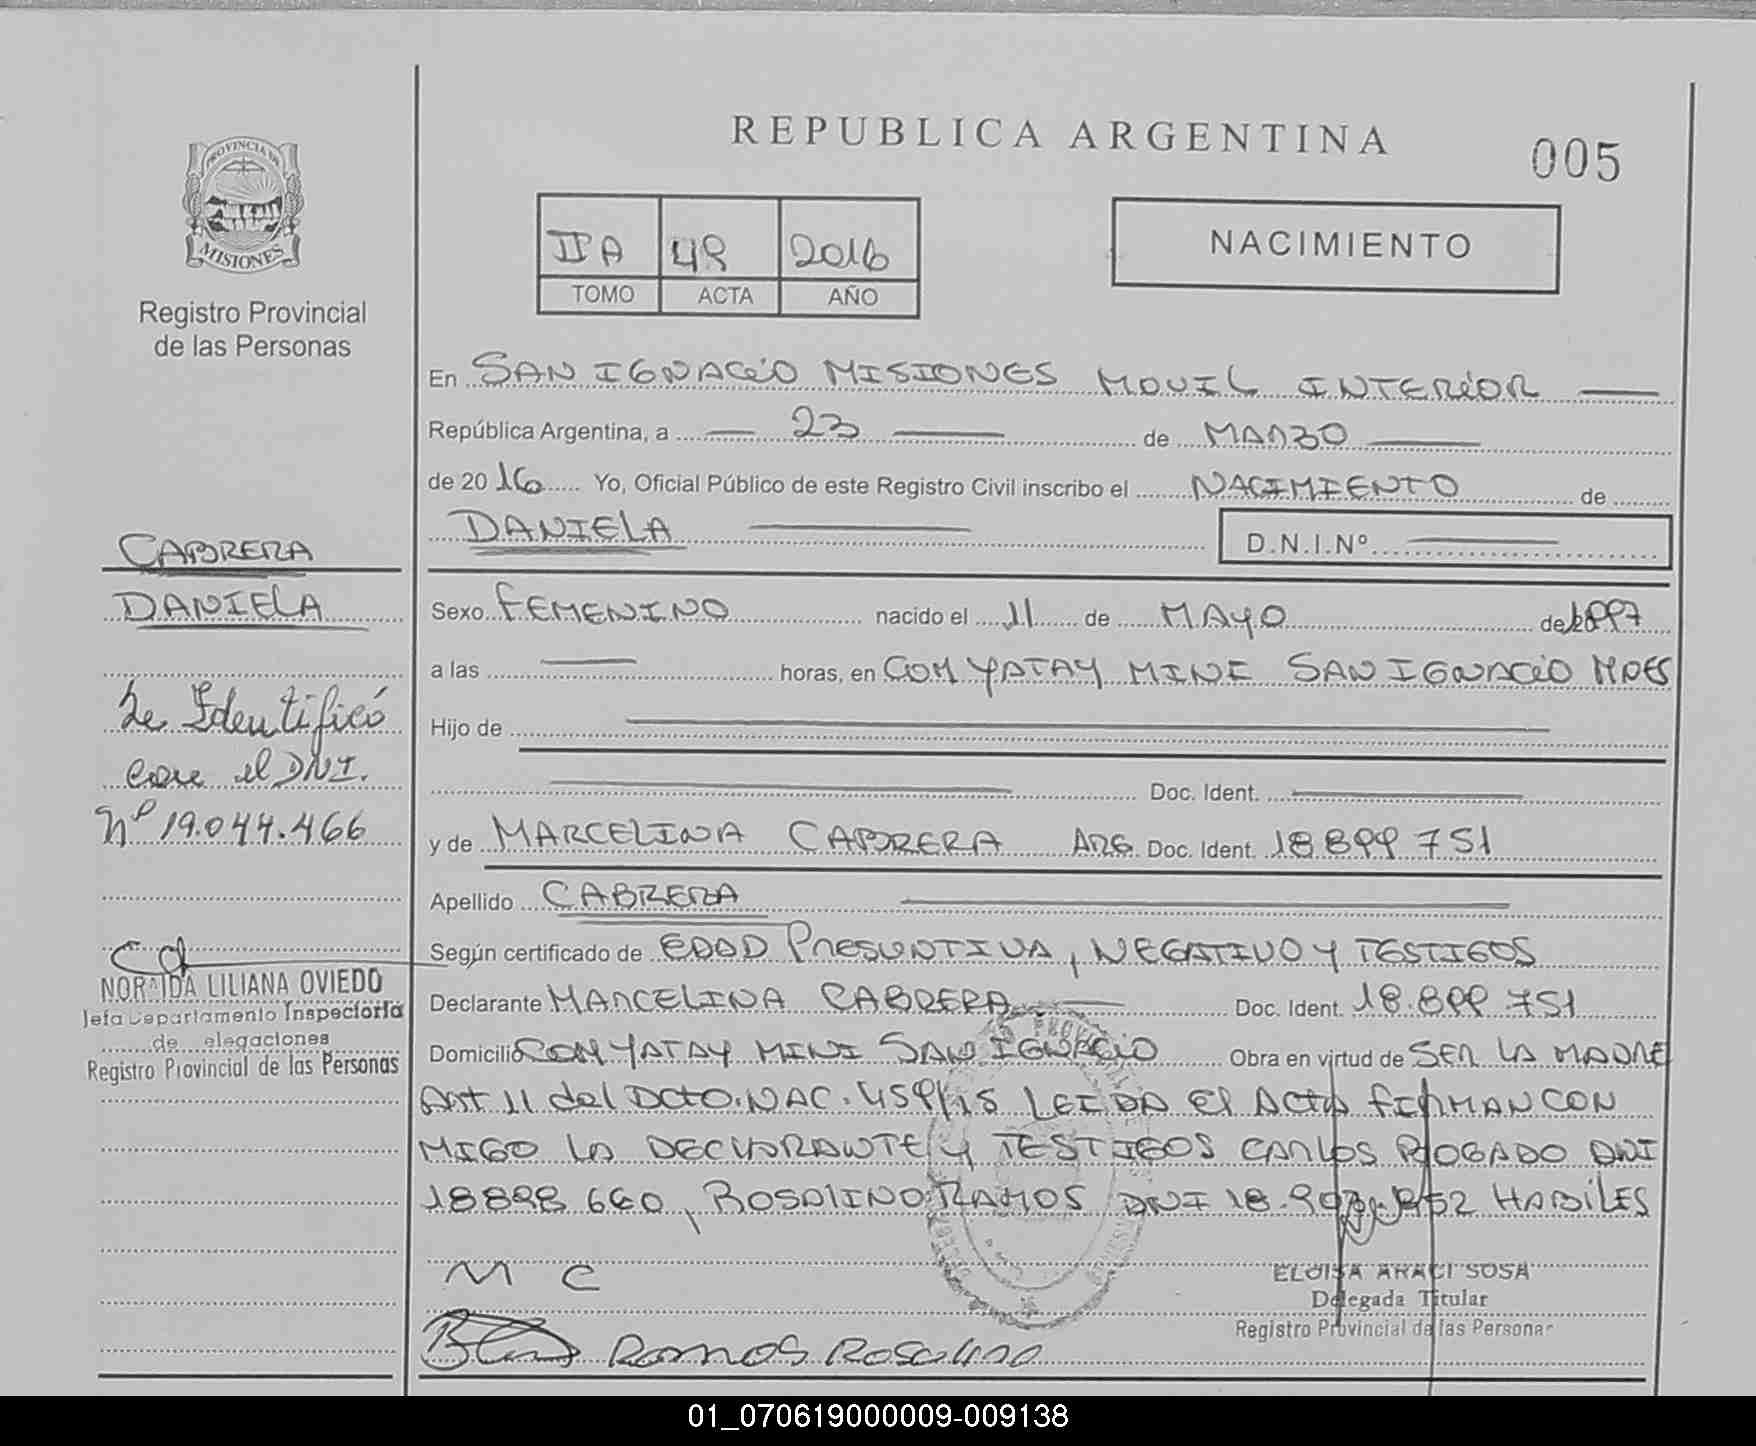 PROVINCIA DE
MISIONES
Registro Provincial
de las Personas
CABRERA
DANIELA
Se Identificó
con el DNI.
Nº 19.044.466
NORAIDA LILIANA OVIEDO
Jefa Departamento Inspectoria
de elegaciones
Registro Provincial de las Personas
REPUBLICA ARGENTINA
005
IIA 48 2016
TOMO ACTA AÑO
NACIMIENTO
En SAN IGNACIO MISIONES MOVIL INTERIOR
República Argentina, a 23 de MARZO
de 2016 Yo, Oficial Público de este Registro Civil inscribo el NACIMIENTO de
DANIELA D.N.I.Nº
Sexo FEMENINO nacido el 11 de MAYO de 1997
a las horas, en COM YATAY MINI SAN IGNACIO MNES
Hijo de
Doc. Ident.
y de MARCELINA CABRERA ARG. Doc. Ident. 18899751
Apellido CABRERA
Según certificado de EDAD PRESUNTIVA, NEGATIVO Y TESTIGOS
Declarante MARCELINA CABRERA Doc. Ident. 18.899.751
Domicilio COM YATAY MINI SAN IGNACIO Obra en virtud de SER LA MADRE
Art 11 del DCTO.NAC.459/15 LEIDA El ACTA FIRMAN CON
MIGO LA DECLARANTE Y TESTIGOS CARLOS ROGADO DNI
18898660, ROSALINO RAMOS DNI 18. HABILES
M C
ELOISA ARACI SOSA
Delegada Titular
Registro Provincial de las Personas
Ramos Rosalino
01_070619000009-009138